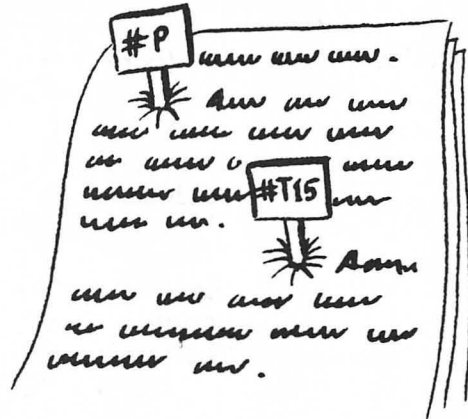 #P
#T15